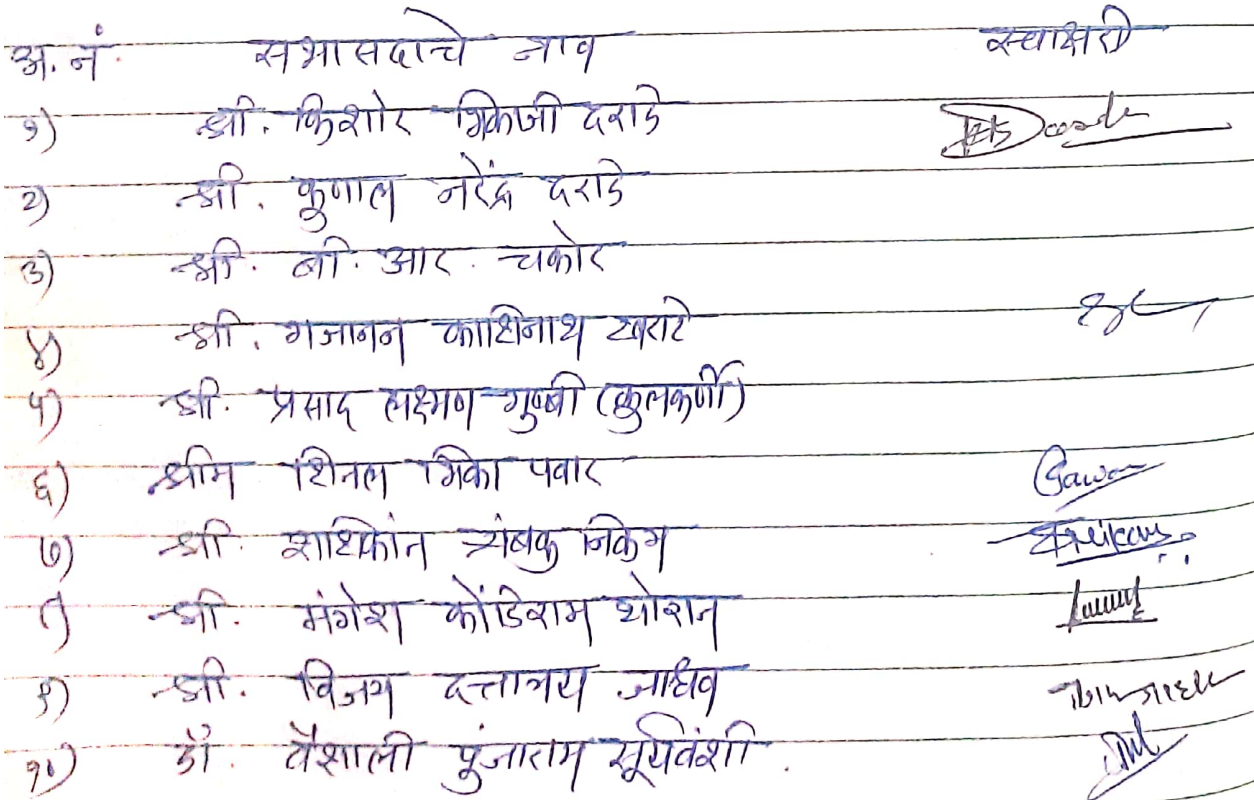 अ. नं. सभासदाचे नाव स्वाक्षरी
१) श्री. किशोर भिकाजी दराडे
२) श्री. कुणाल नरेंद्र दराडे
३) श्री. बी. आर. चकोर
४) श्री. गजानन काशिनाथ खराटे
५) श्री. प्रसाद लक्ष्मण गुब्बी (कुलकर्णी)
६) श्रीम शितल भिका पवार
७) श्री. शशिकांत त्र्यंबक निकम
८) श्री. मंगेश कोंडिराम थोरात
९) श्री. विजय दत्तात्रय जाधव
१०) डॉ. वैशाली पुंजाराम सूर्यवंशी.